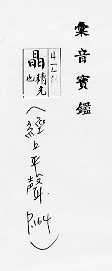 彙音寶鑑
晶 精光也
(經上平聲 P.164)